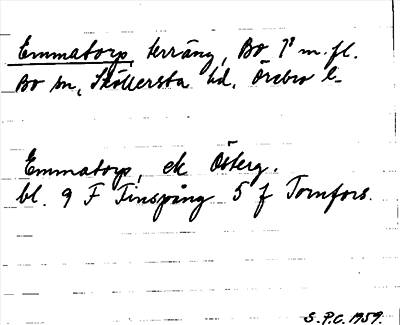 Emmatorp, terräng, Bo 1³ m. fl.
Bo sn, Sköllersta hd. Örebro l-
Emmatorp, ek Österg.
bl. 9 F Finspång 5 f Tornfors.
S.P.C. 1959.